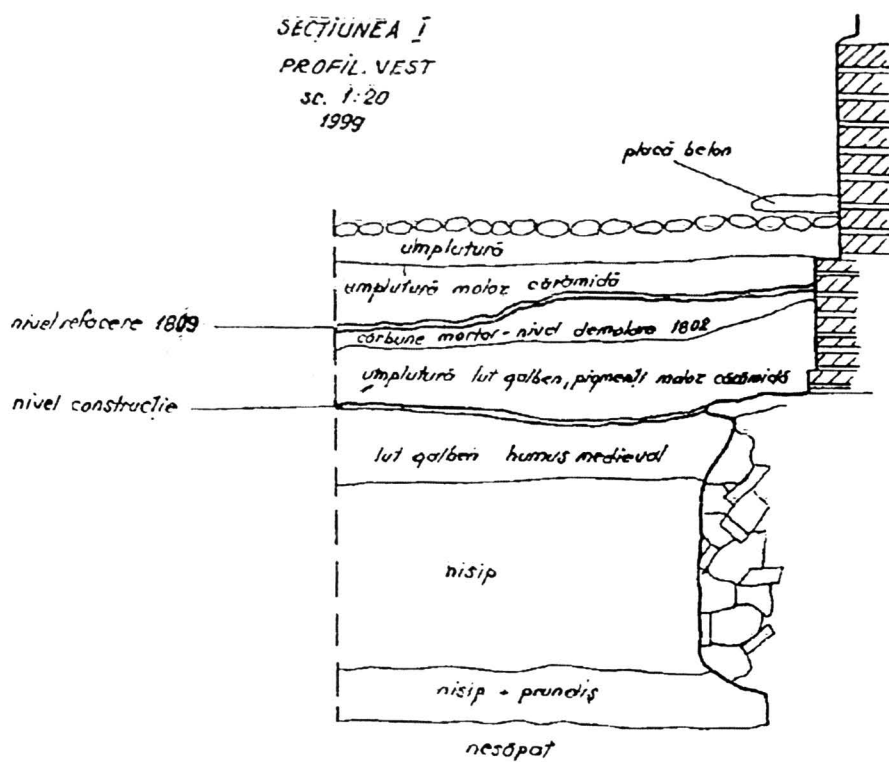 SECȚIUNEA I
PROFIL. VEST
sc. 1:20
1999
placă beton
umplutură
umplutură moloz cărămidă
nivel refacere 1809
cărbune mortar - nivel demolare 1802
umplutură lut galben, pigmenți moloz cărămidă
nivel construcție
lut galben humus medieval
nisip
nisip + prundiș
nesăpat